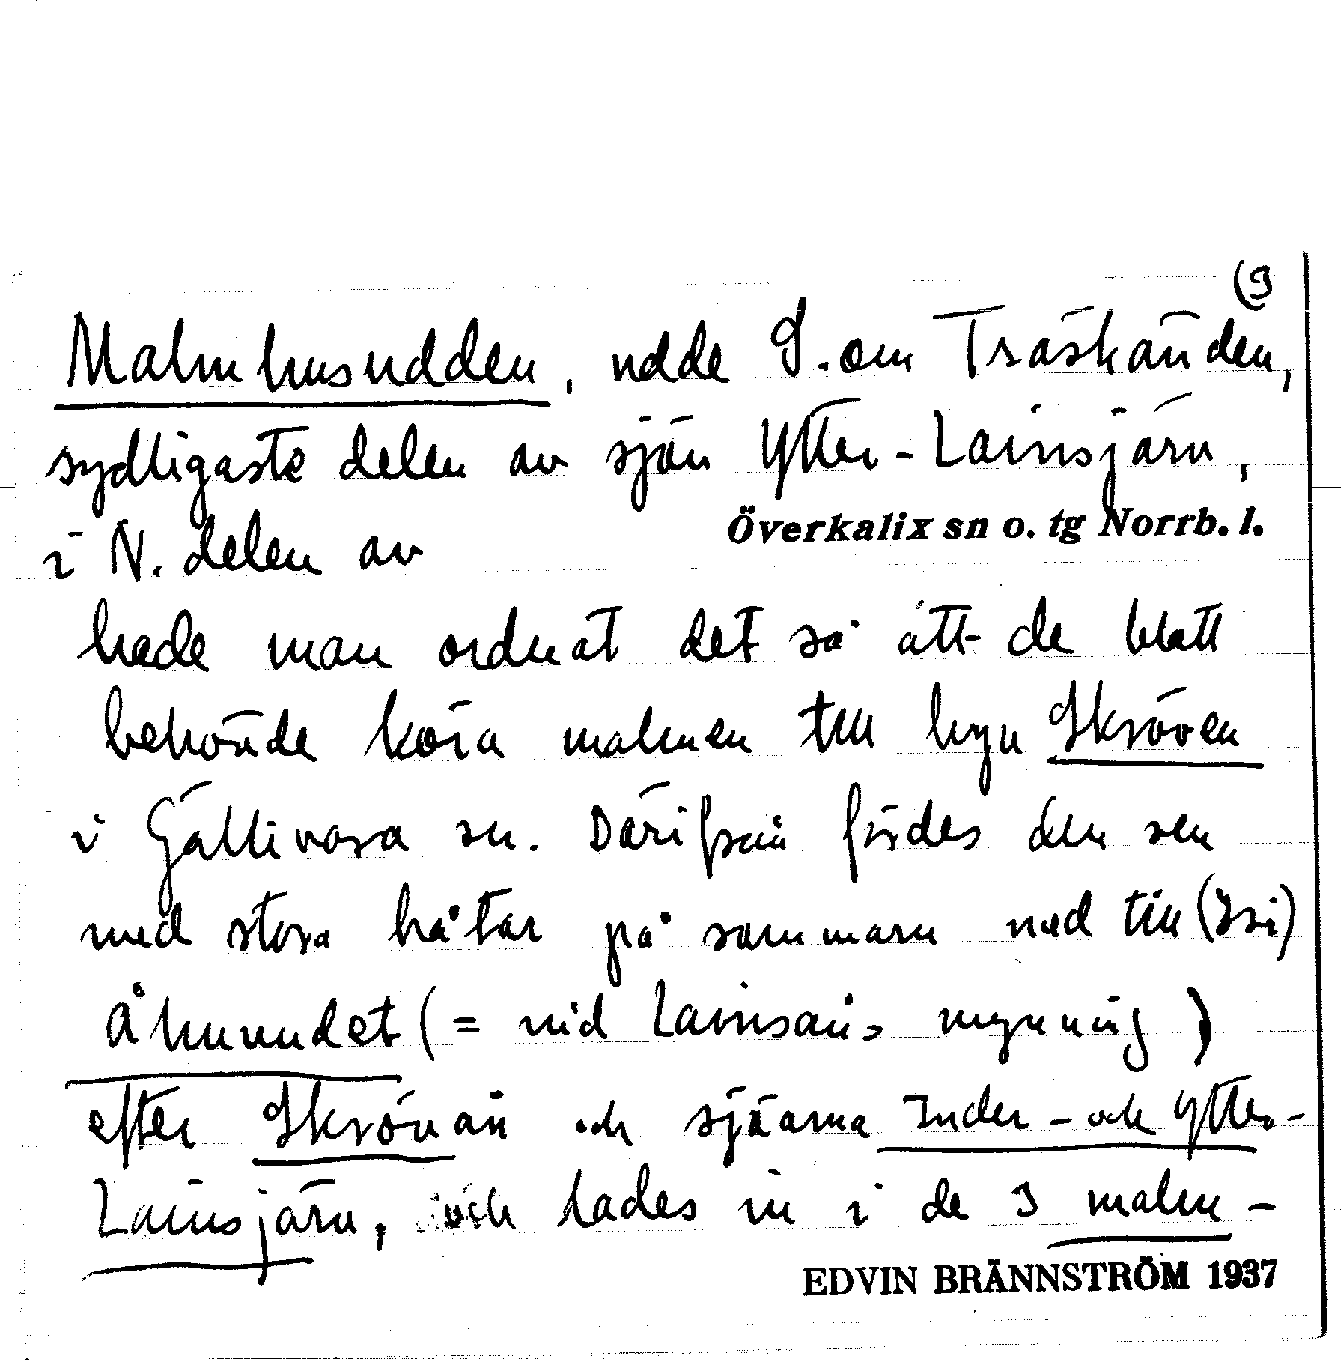 (3
Malmhusudden, udde S. om Träskänden,
sydligaste delen av sjön Ytter-Lainsjärv,
Överkalix sn o. tg Norrb. l.
i N. delen av
hade man ordnat det så att de blott
behövde köra malmen till byn Skröven
i Gällivara sn. Därifrån fördes den sen
med stora båtar på sommarn ned till
Åhuvudet (= vid Lainsåns mynning)
efter Skrövån och sjöarna Inder- och Ytter-
Lainsjärv, och lades in i de 3 malm-
EDVIN BRÄNNSTRÖM 1937